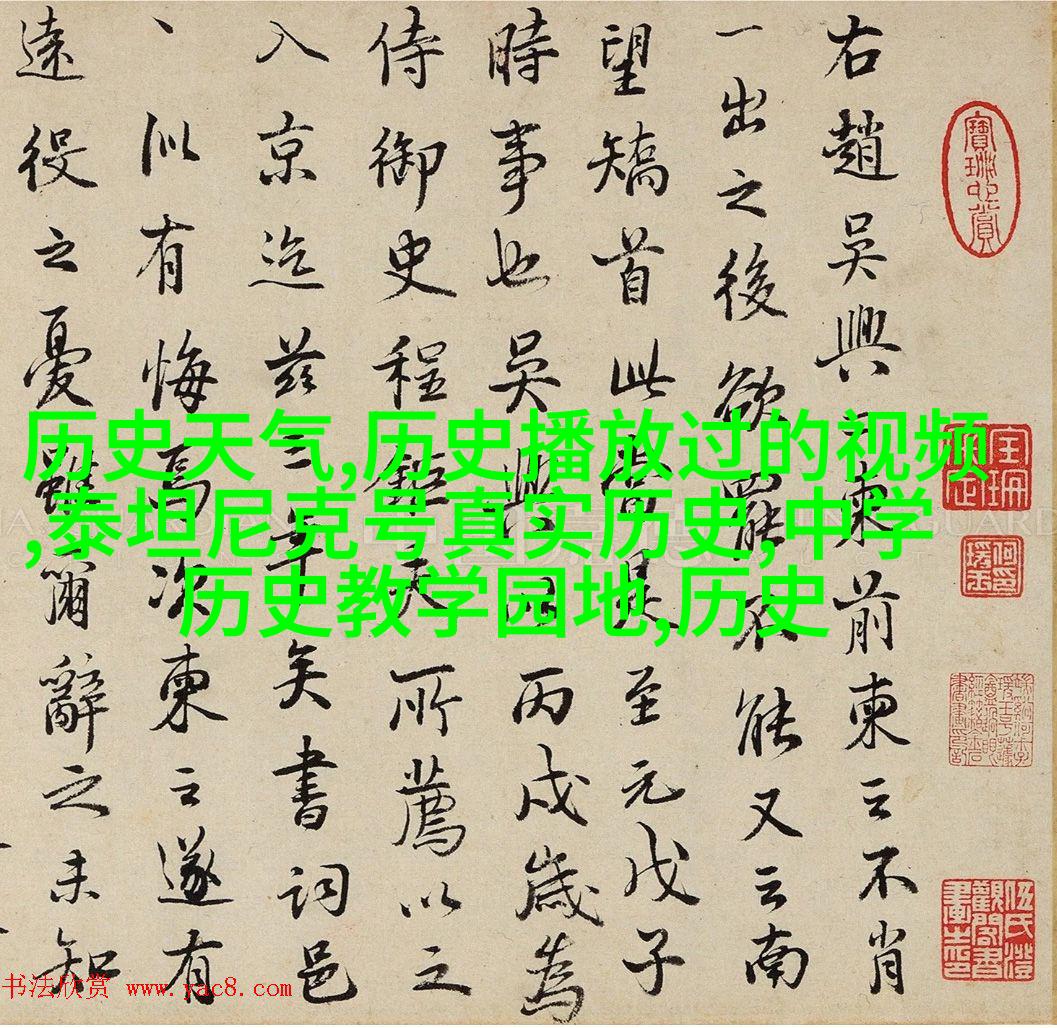 右趙吳興柬前柬云不肖
一出之後欲罷不能又云南
望矯首此當是至元戊子
時事也吳興因丙戌歲為
侍御史程鉅夫所薦以之
入京迄茲三年矣書詞邑
、似有悔焉次柬云遂有
遠役之憂雖爾辭之未知
历史天气,历史播放过的视频
,泰坦尼克号真实历史,中学
历史教学园地,历史
书法欣赏 www.yac8.com